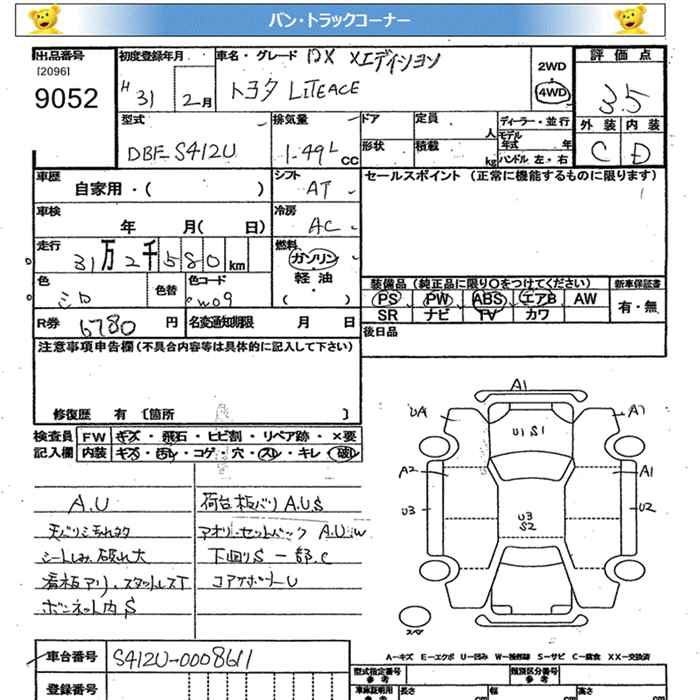 バン・トラックコーナー
出品番号 初度登録年月 車名・グレード DX Xエディション 2WD 評価点
[2096] 4WD
9052 H 31 2月 トヨタ LITEACE 3.5
型式 排気量 ドア 定員 人 ディーラー・並行 外装 内装
DBF-S412U 1.49L CC 形状 積載 kg モデル年式 年 C D
ハンドル 左・右
車歴 シフト セールスポイント (正常に機能するものに限ります)
自家用・( ) AT
車検 冷房
年 月( 日) AC
走行 燃料
31万2千580km ガソリン
軽油
色 色替 色コード ( ) 装備品 (純正品に限り○をつけてください) 新車保証書
シロ W09 PS PW ABS エアB AW 有・無
SR ナビ TV カワ
R券 6780円 名変通知期限 月 日 後日品
注意事項申告欄(不具合内容等は具体的に記入して下さい)
修復歴 有 [箇所 ]
検査員 FW キズ・飛石・ヒビ割・リペア跡・×要
記入欄 内装 キズ・汚レ・コゲ・穴・スレ・キレ・破レ
A.U 荷台板バリ A.U.S
アオリ・セットバック A.U.W
シートしみ、破れ大 下回りS一部.C
看板アリ.スタッドレスT コアサポートU
ボンネット内S
A1
UA
A7
U1 S1
A2
A1
U3
U2
U3
S2
スペア
A-キズ E-エクボ U-凹み W-補修跡 S-サビ C-腐食 XX-交換済
車台番号 S412U-0008611 型式指定番号 参考 類別区分番号 参考
登録番号 車庫証明用 参考 長さ cm 幅 cm 高さ cm